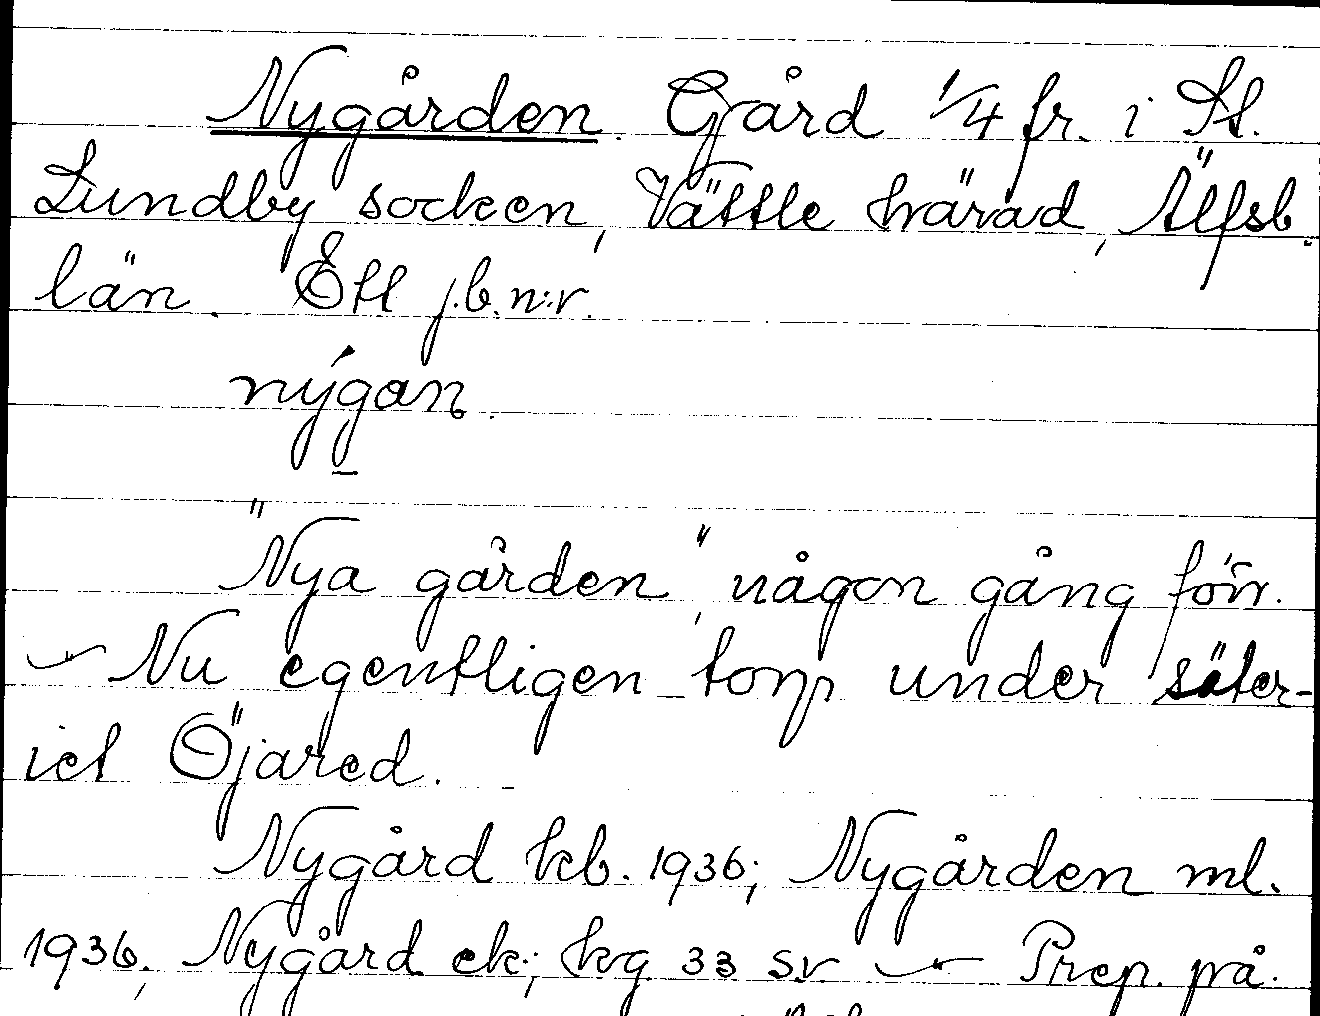 Nygården. Gård 1/4 fr. i St.
Lundby socken, Vättle härad, Älfsb.
län. Ett j.b.n:r.
nýgan.
"Nya gården", någon gång förr.
– Nu egentligen torp under säter-
iet Öjared.
Nygård kb. 1936; Nygården ml.
1936, Nygård ek; kg 33 sv – Prep. på.